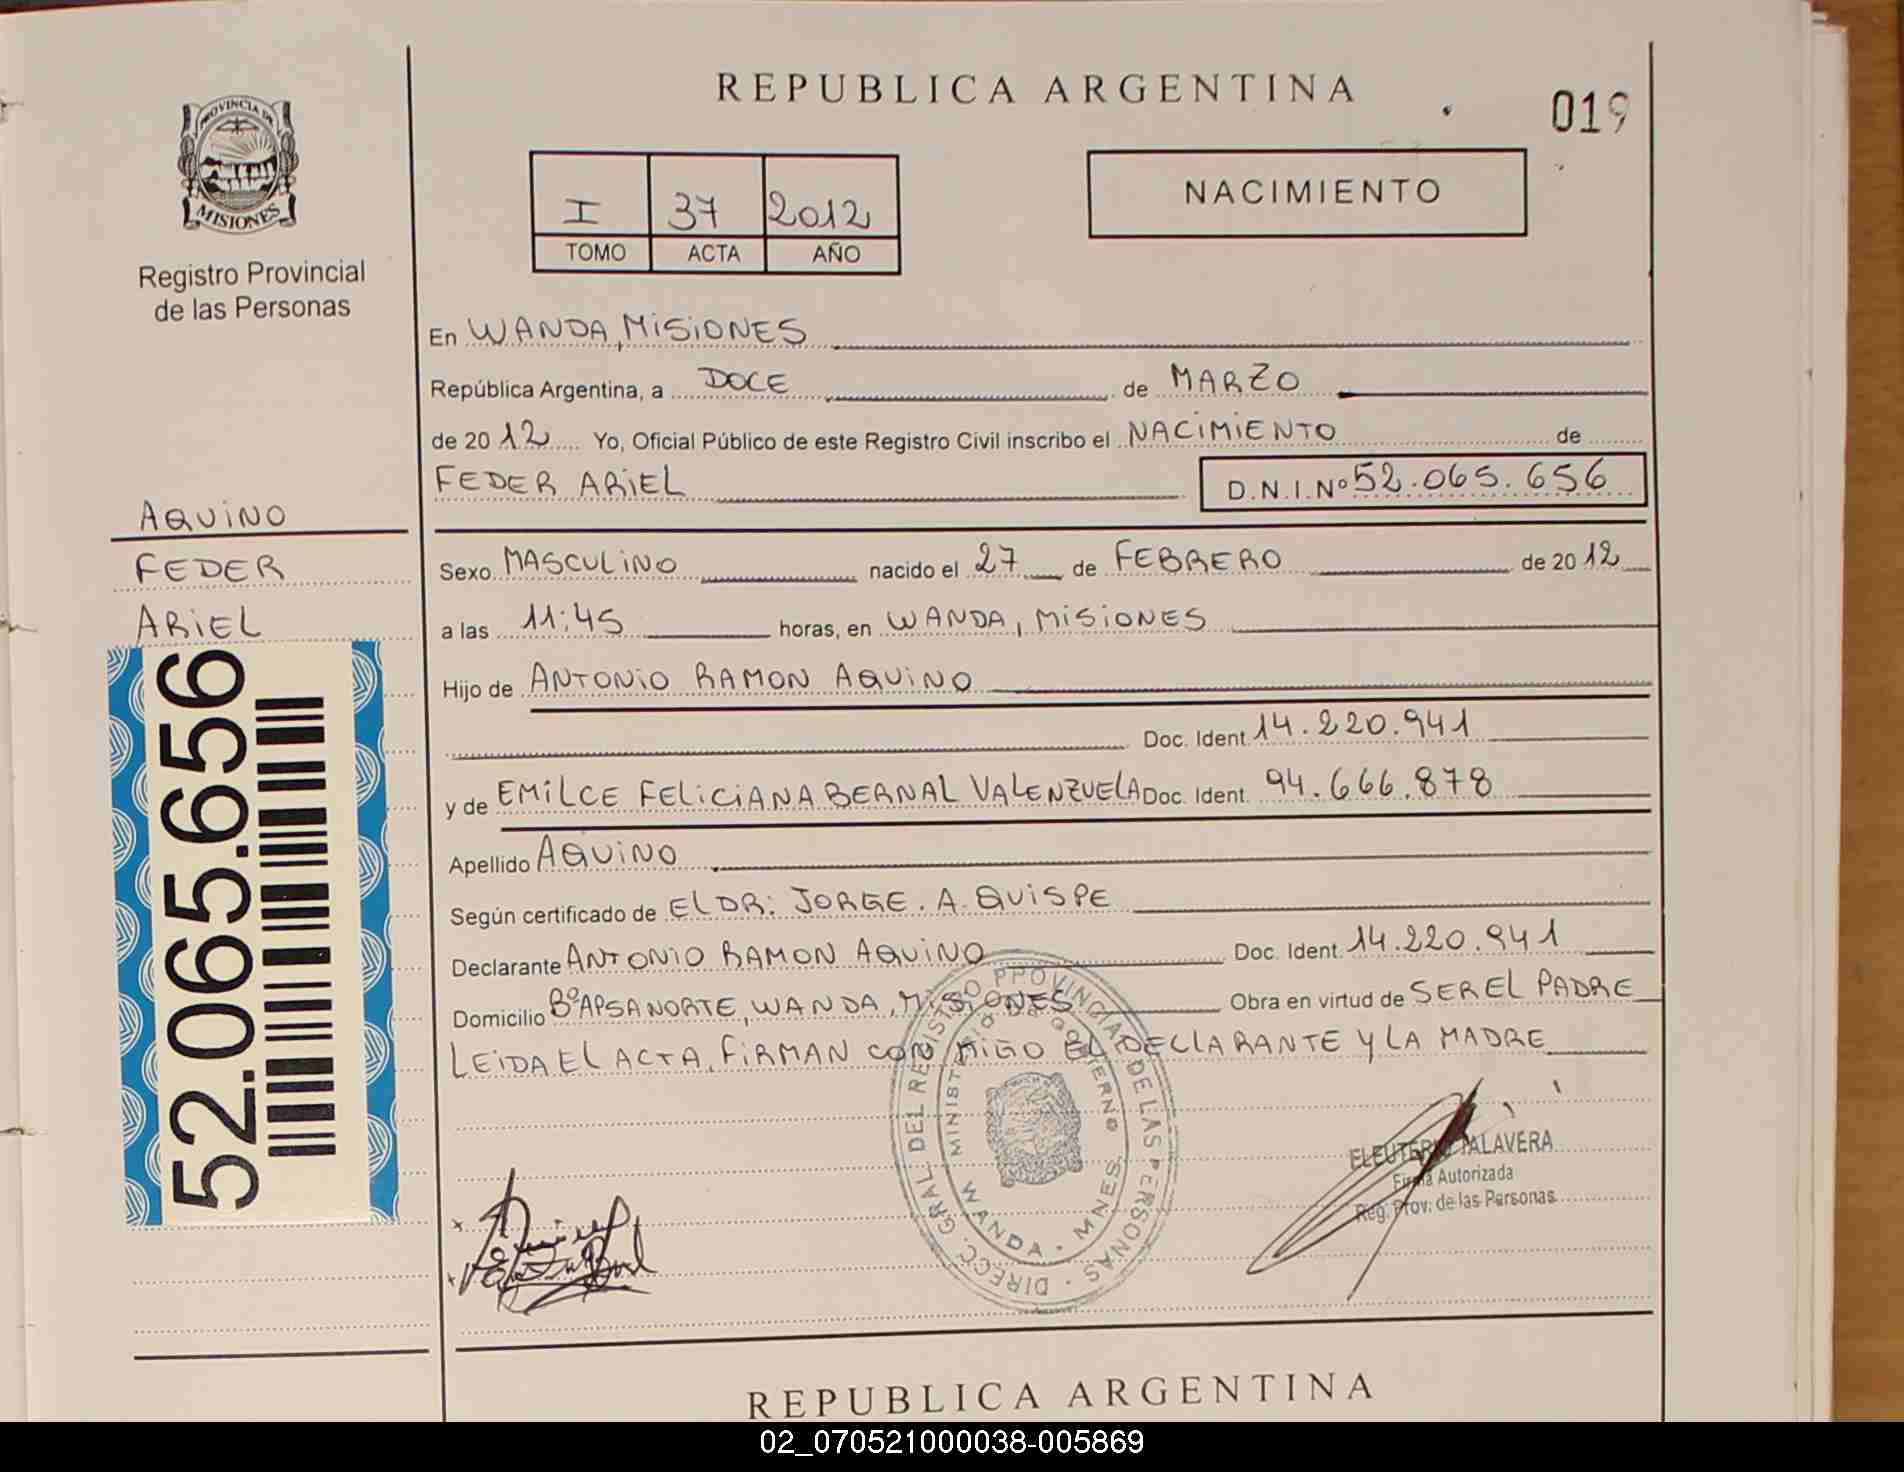 REPUBLICA ARGENTINA
019
PROVINCIA DE
MISIONES
Registro Provincial
de las Personas
I 37 2012
TOMO ACTA AÑO
NACIMIENTO
En WANDA, MISIONES
República Argentina, a DOCE de MARZO
de 2012 Yo, Oficial Público de este Registro Civil inscribo el NACIMIENTO de
FEDER ARIEL D.N.I.Nº 52.065.656
AQUINO
FEDER
ARIEL
52.065.656
Sexo MASCULINO nacido el 27 de FEBRERO de 2012
a las 11:45 horas, en WANDA, MISIONES
Hijo de ANTONIO RAMON AQUINO
Doc. Ident. 14.220.941
y de EMILCE FELICIANA BERNAL VALENZUELA Doc. Ident. 94.666.878
Apellido AQUINO
Según certificado de EL DR: JORGE. A. QUISPE
Declarante ANTONIO RAMON AQUINO Doc. Ident. 14.220.941
Domicilio Bº APSA NORTE, WANDA, MISIONES Obra en virtud de SER EL PADRE
LEIDA EL ACTA, FIRMAN CON MIGO EL DECLARANTE Y LA MADRE
DIRECC. GRAL DEL REGISTRO PROVINCIAL DE LAS PERSONAS
MINISTERIO DE GOBIERNO
WANDA - MNES.
ELEUTERIO TALAVERA
Firma Autorizada
Reg. Prov. de las Personas
REPUBLICA ARGENTINA
02_070521000038-005869